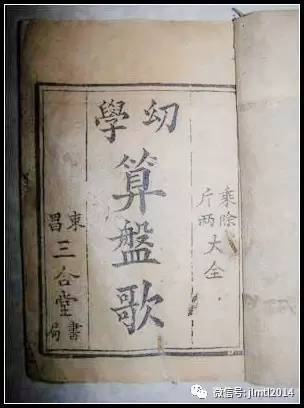 幼學
乘除斤两大全
算盤歌
東昌三合堂書局
微信号: jlmtl2014